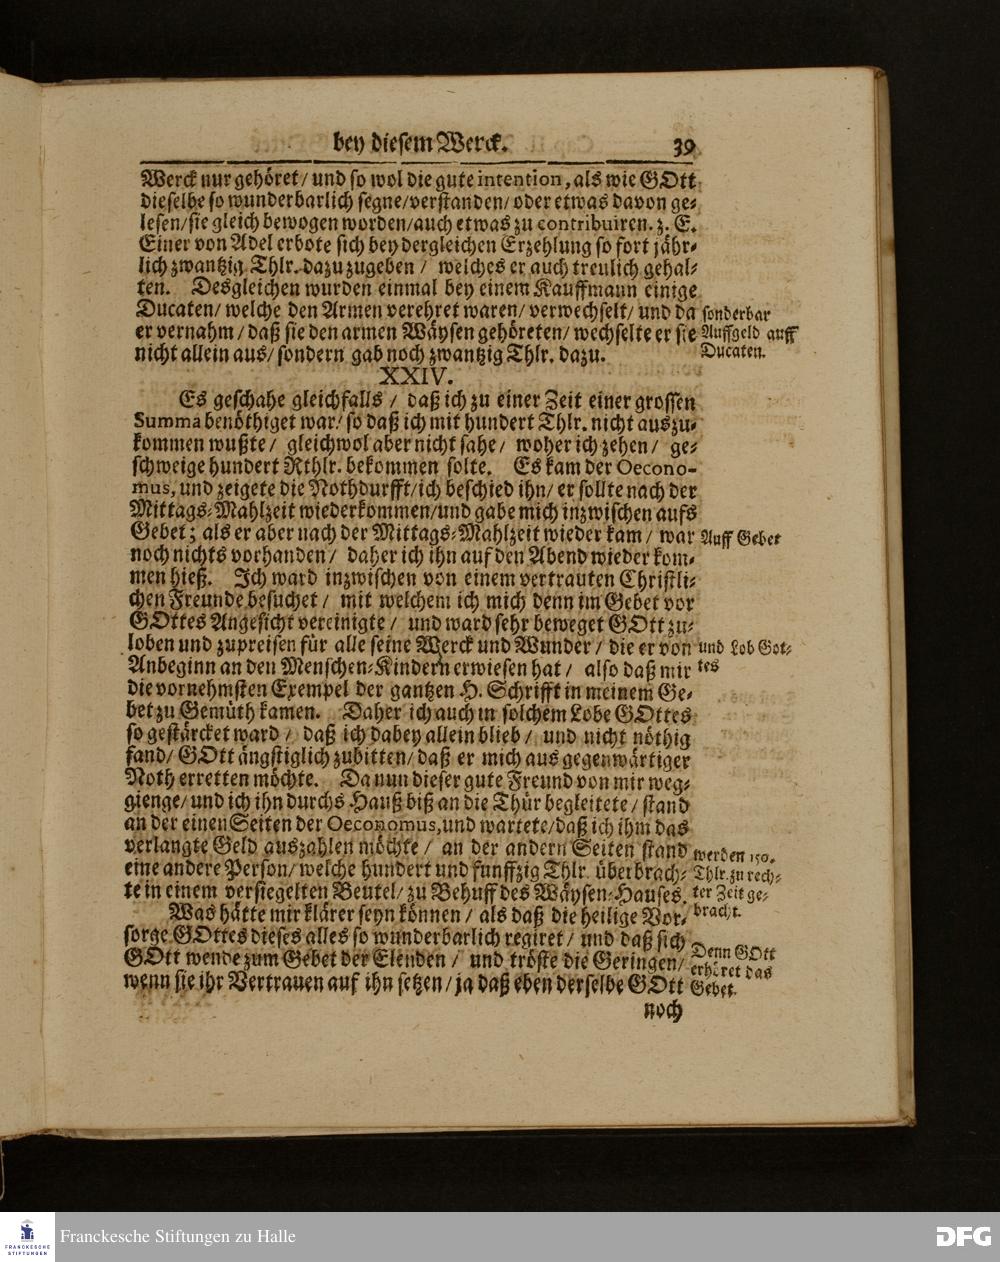 bey diesem Werck. 39
Werck nur gehöret/ und so wol die gute intention, als wie GOtt
dieselbe so wunderbarlich segne/verstanden/ oder etwas davon ge-
lesen/sie gleich bewogen worden/auch etwas zu contribuiren. z. E.
Einer von Adel erbote sich bey dergleichen Erzehlung so fort jähr-
lich zwantzig Thlr. dazu zugeben / welches er auch treulich gehal-
ten. Desgleichen wurden einmal bey einem Kauffmann einige
Ducaten/ welche den Armen verehret waren/ verwechselt/ und da
er vernahm/ daß sie den armen Wäysen gehöreten/ wechselte er sie
nicht allein aus/ sondern gab noch zwantzig Thlr. dazu.
sonderbar
Auffgeld auff
Ducaten.
XXIV.
Es geschahe gleichfalls / daß ich zu einer Zeit einer grossen
Summa benöthiget war/ so daß ich mit hundert Thlr. nicht auszu-
kommen wußte/ gleichwol aber nicht sahe/ woher ich zehen/ ge-
schweige hundert Rthlr. bekommen solte. Es kam der Oecono-
mus, und zeigete die Nothdurfft/ich beschied ihn/ er sollte nach der
Mittags-Mahlzeit wiederkommen/und gabe mich inzwischen aufs
Gebet; als er aber nach der Mittags-Mahlzeit wieder kam/ war
noch nichts vorhanden/ daher ich ihn auf den Abend wieder kom-
men hieß. Ich ward inzwischen von einem vertrauten Christli-
chen Freunde besuchet / mit welchem ich mich denn im Gebet vor
GOttes Angesicht vereinigte / und ward sehr beweget GOtt zu-
loben und zupreisen für alle seine Werck und Wunder/ die er von
Anbeginn an den Menschen-Kindern erwiesen hat / also daß mir
die vornehmsten Exempel der gantzen H. Schrifft in meinem Ge-
bet zu Gemüth kamen. Daher ich auch in solchem Lobe GOttes
so gestärcket ward / daß ich dabey allein blieb / und nicht nöthig
fand/ GOtt ängstiglich zubitten/ daß er mich aus gegenwärtiger
Noth erretten möchte. Da nun dieser gute Freund von mir weg-
gienge/ und ich ihn durchs Hauß biß an die Thür begleitete/ stand
an der einen Seiten der Oeconomus,und wartete/daß ich ihm das
verlangte Geld auszahlen möchte / an der andern Seiten stand
eine andere Person/ welche hundert und funffzig Thlr. überbrach-
te in einem versiegelten Beutel/ zu Behuff des Wäysen-Hauses.
Auff Gebet
und Lob Got-
tes
werden 150.
Thlr. zu rech-
ter Zeit ge-
bracht.
Was hätte mir klärer seyn können / als daß die heilige Vor-
sorge GOttes dieses alles so wunderbarlich regiret / und daß sich
GOtt wende zum Gebet der Elenden / und tröste die Geringen/
wenn sie ihr Vertrauen auf ihn setzen/ ja daß eben derselbe GOtt
Denn GOtt
erhöret das
Gebet.
noch
FRANCKESCHE
STIFTUNGEN
Franckesche Stiftungen zu Halle
DFG